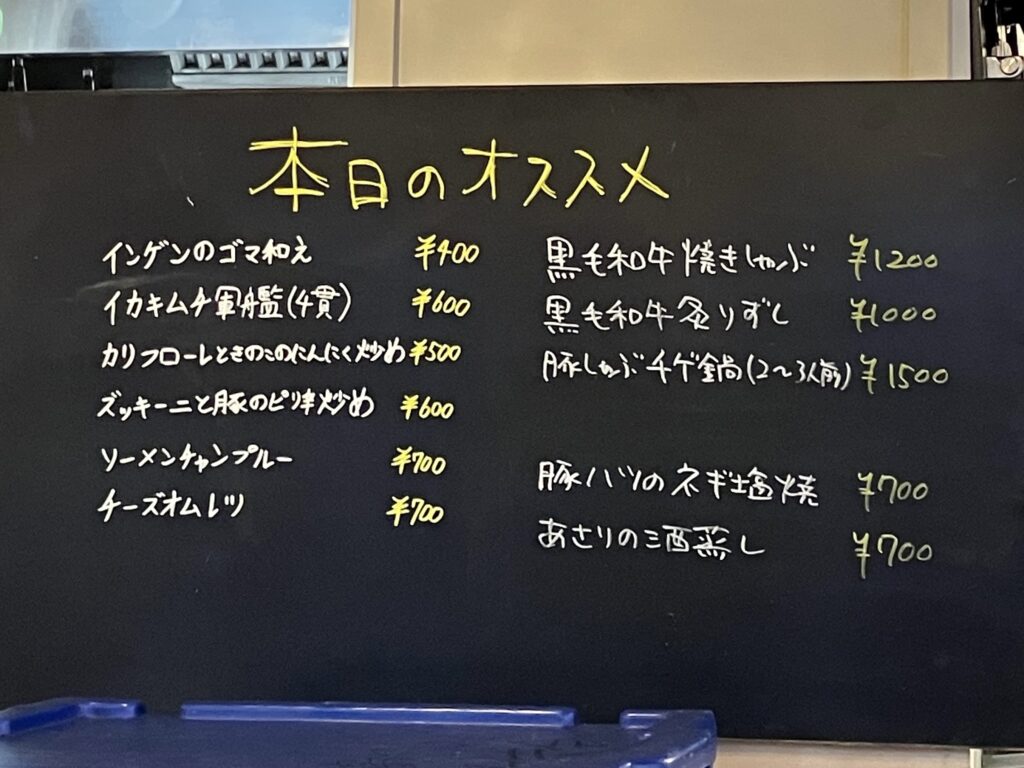 本日のオススメ
インゲンのゴマ和え ¥400
イカキムチ軍艦(4貫) ¥600
カリフローレときのこのにんにく炒め ¥500
ズッキーニと豚のピリ辛炒め ¥600
ソーメンチャンプルー ¥700
チーズオムレツ ¥700
黒毛和牛焼きしゃぶ ¥1200
黒毛和牛炙りずし ¥1000
豚しゃぶチゲ鍋(2～3人前) ¥1500
豚ハツのネギ塩焼 ¥700
あさりの酒蒸し ¥700